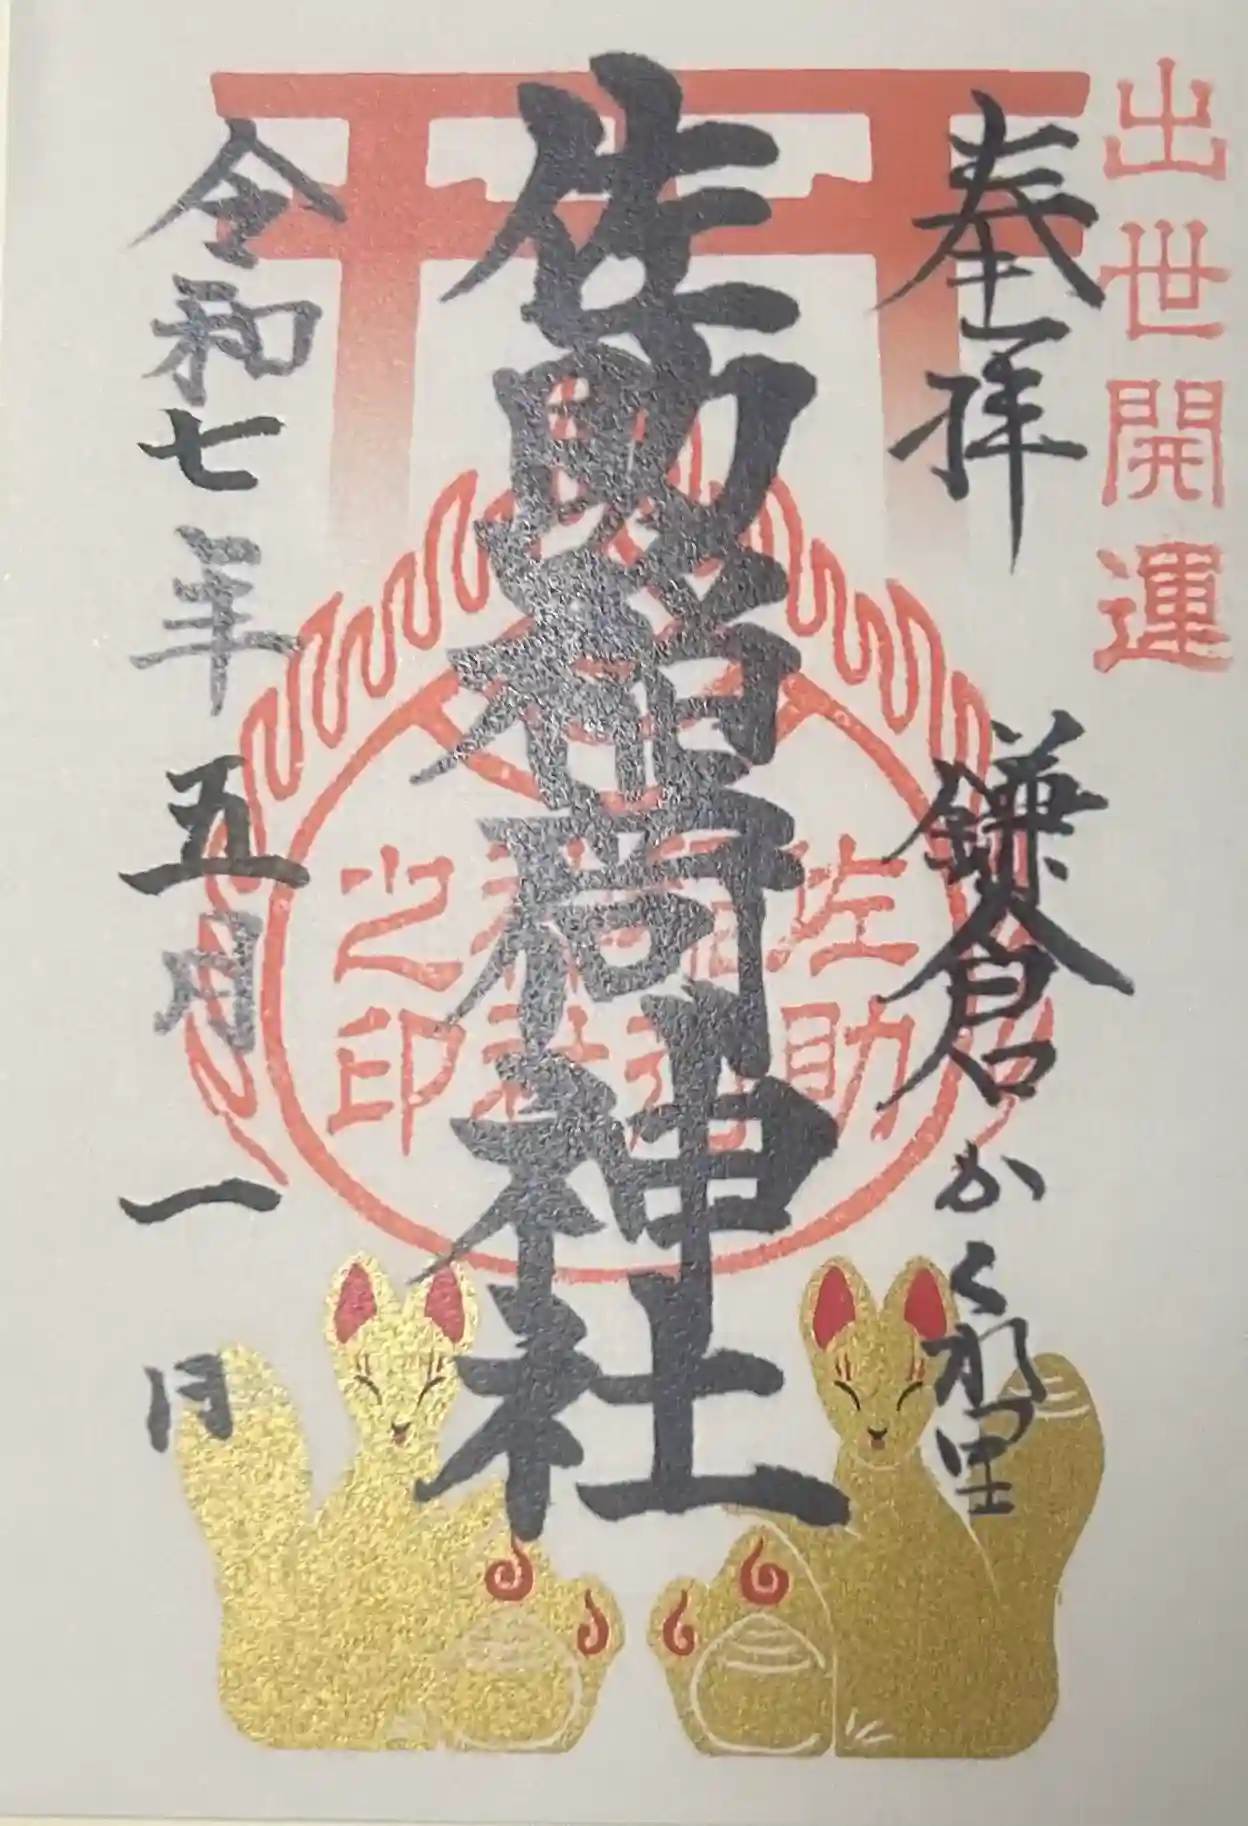 出世開運
奉拝 鎌倉かくれ里
佐助稲荷神社
佐助
之印
令和七年五月一日